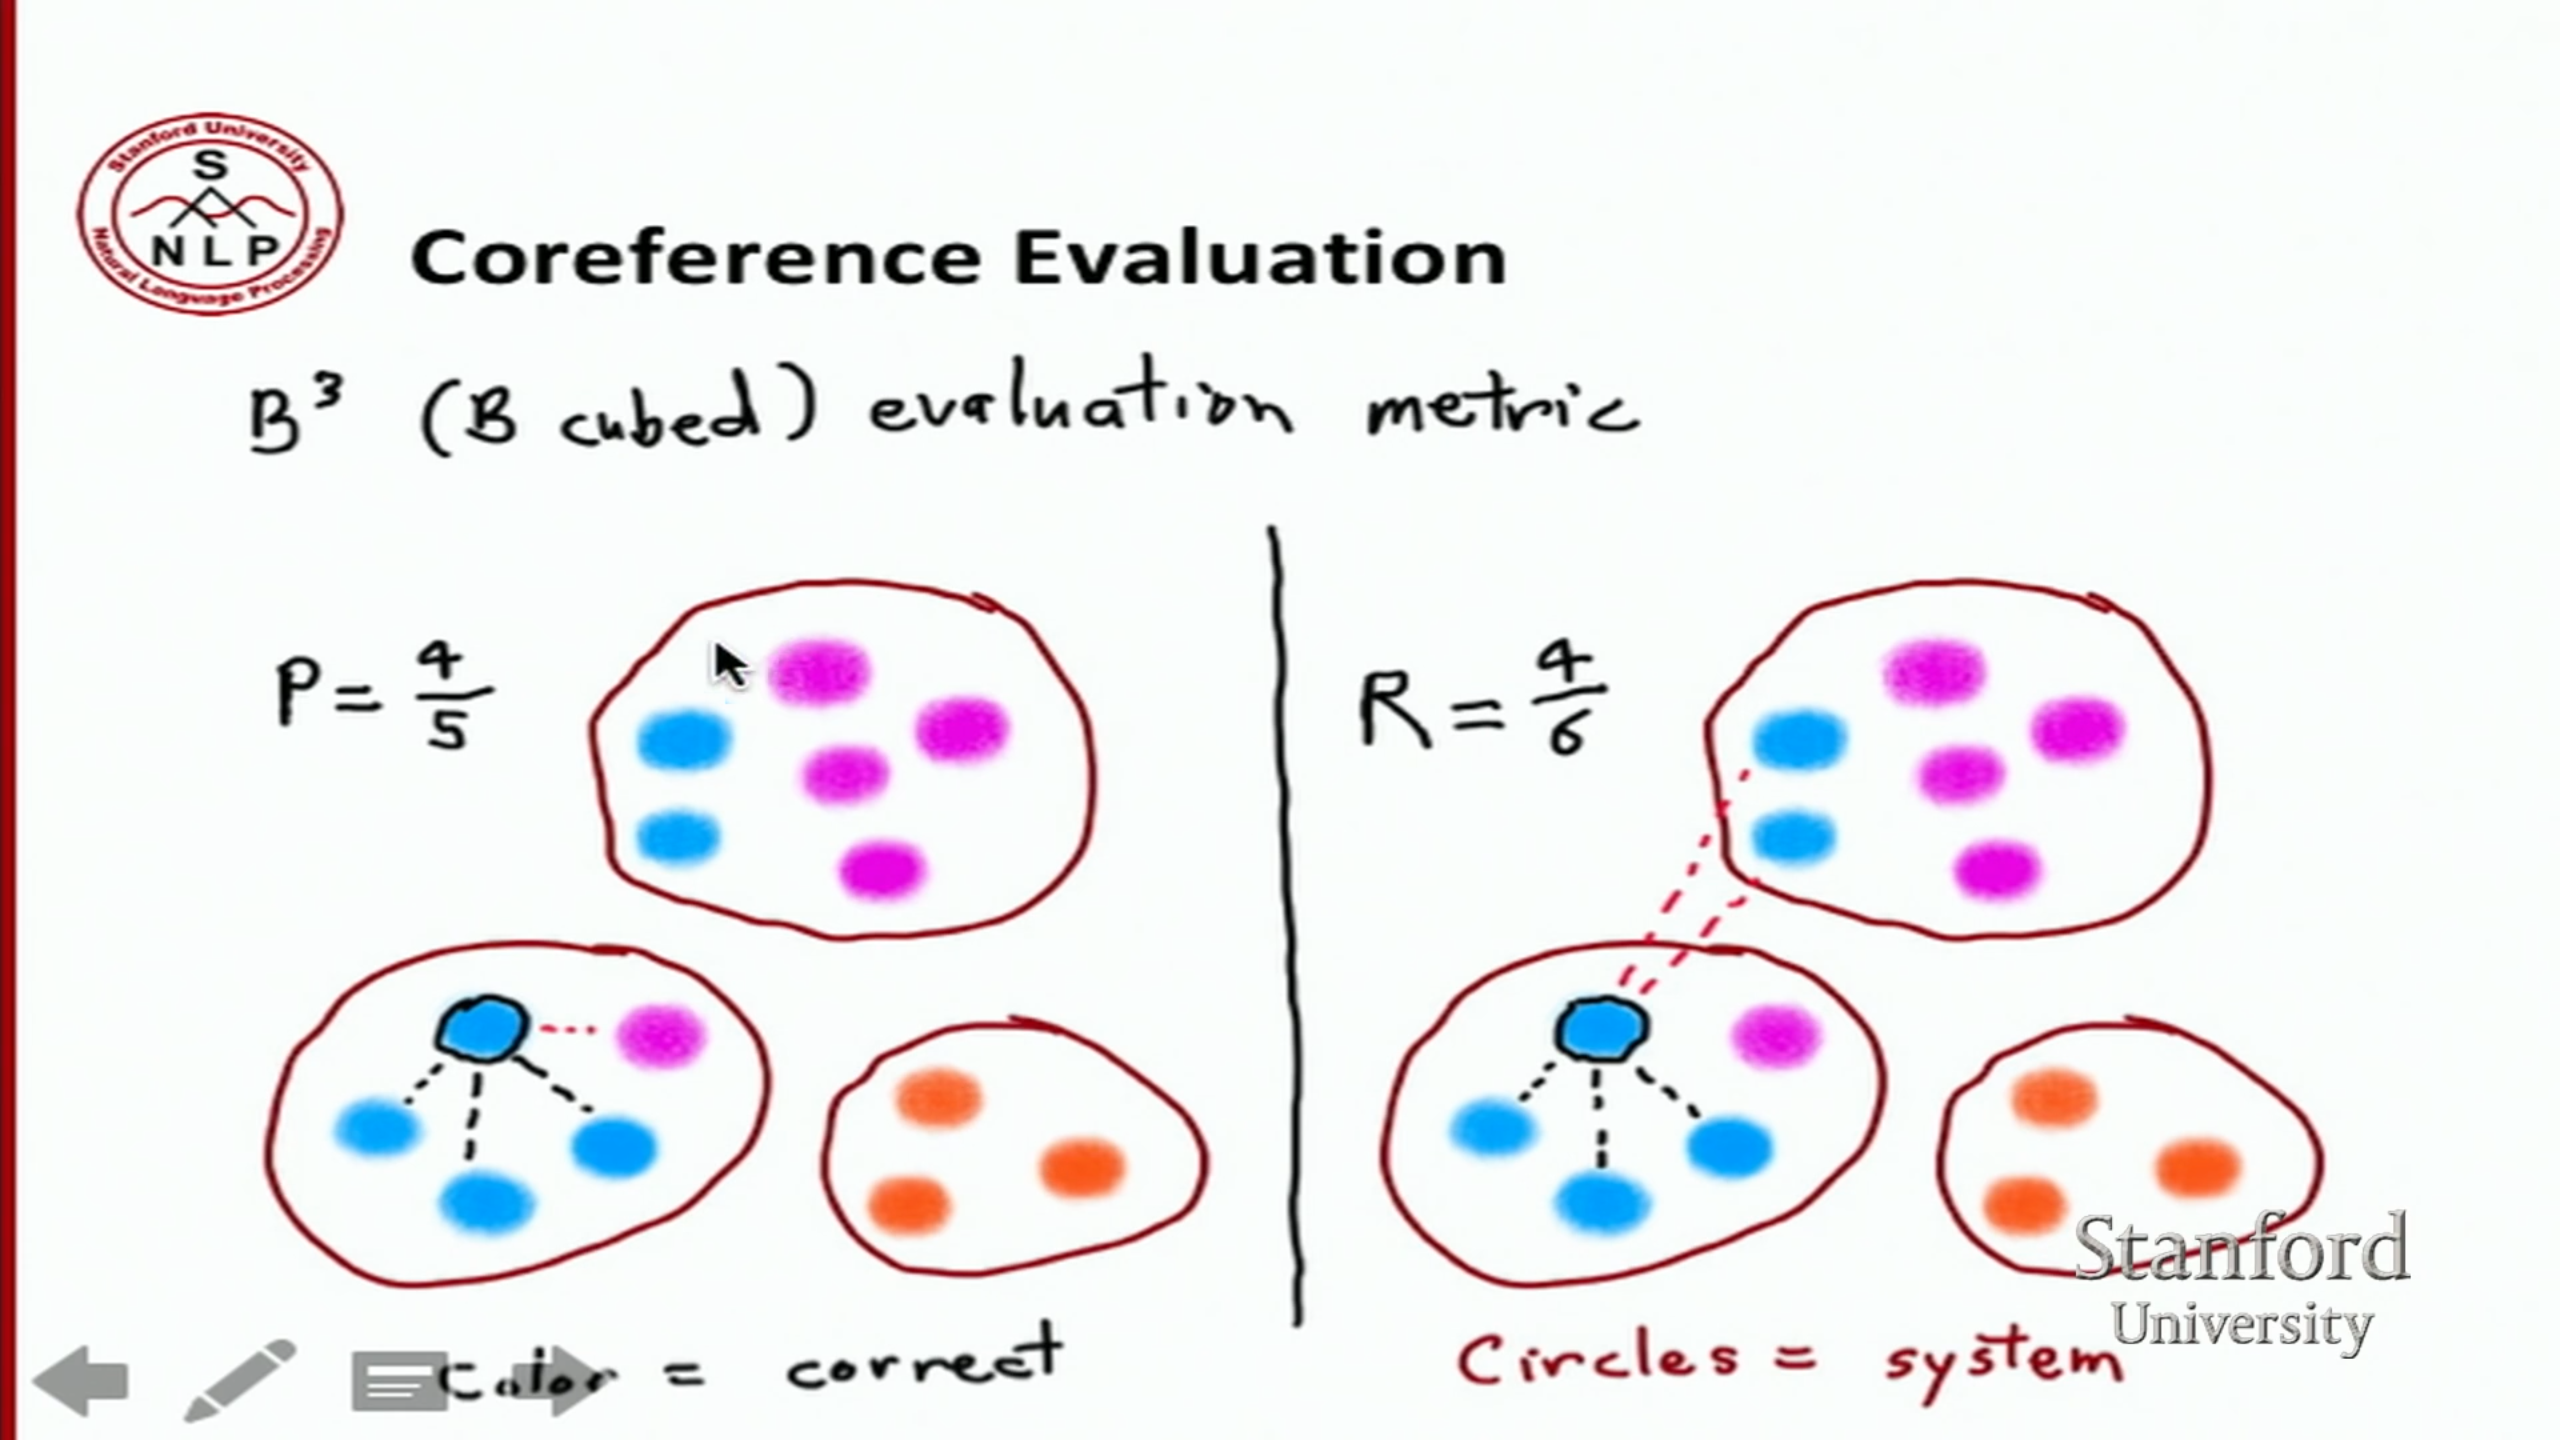 Stanford University
S
NLP
Natural Language Processing
Coreference Evaluation
B³ (B cubed) evaluation metric
P = 4/5
R = 4/6
Color = correct
Circles = system
Stanford
University